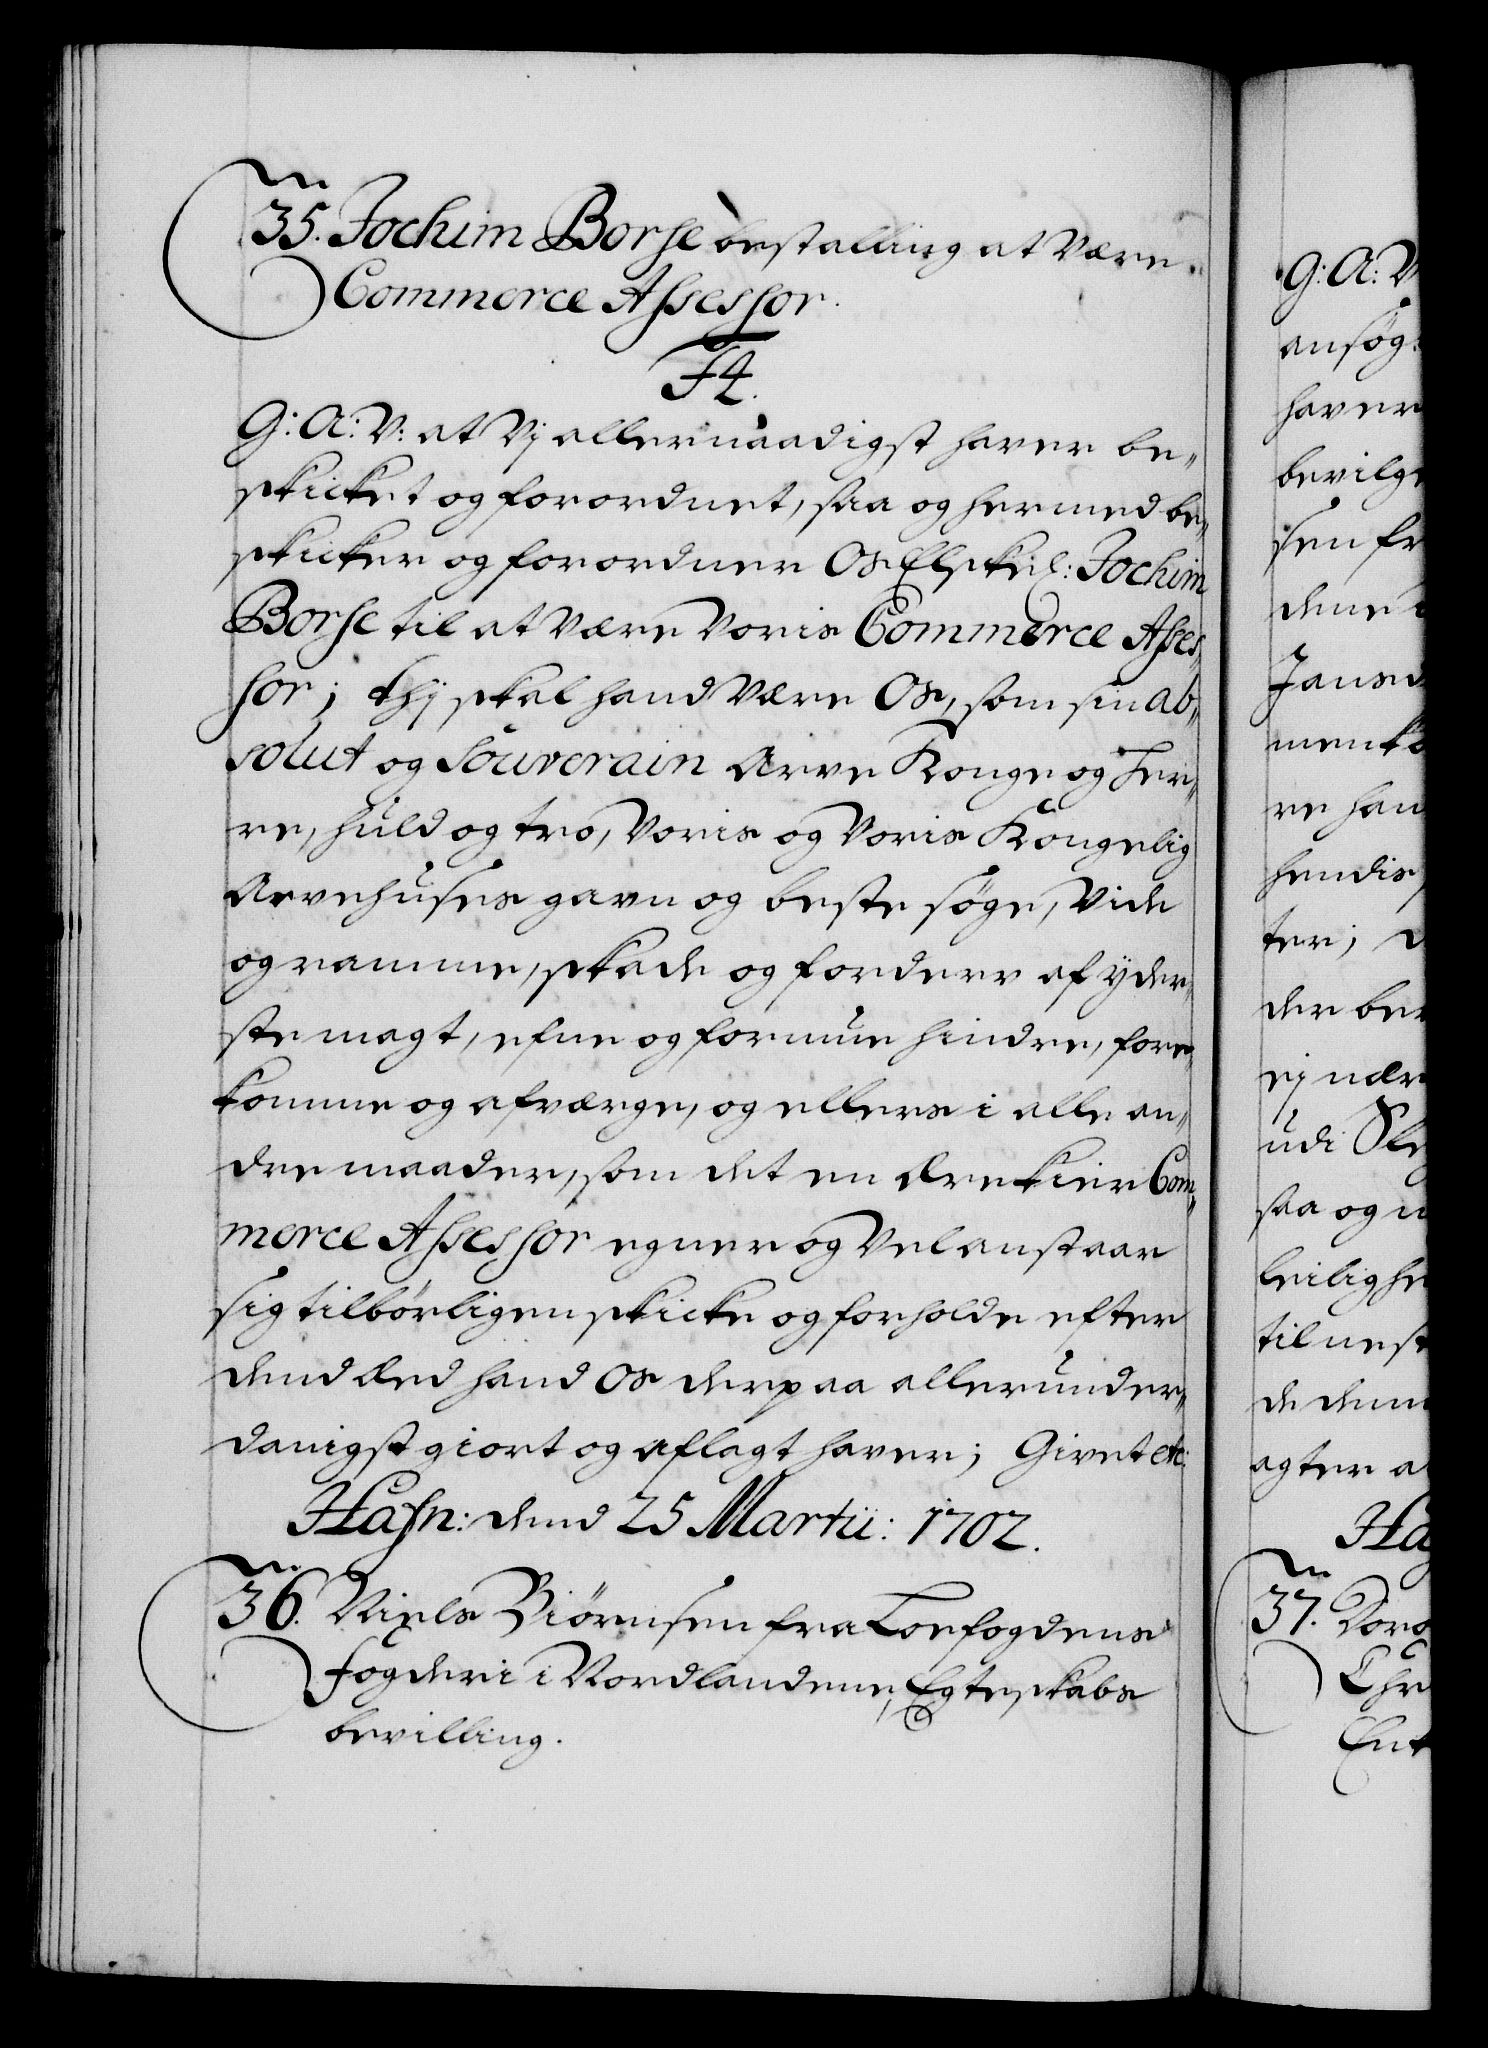 35. Jochim Borse bestalling at være
Commerce Assessor.
F4.
G: A: V: at Vj allernaadigst haver be,,
skicket og forordnet, saa og hermed be,,
skicker og forordner Os Elskel: Jochim
Borse til at være voris Commerce Asses,,
sor; thj skal hand være Os, som sin ab,,
solut og Souverain Arve Konge og Her,,
re, huld og tro, voris og voris Kongelig
Arvehuses gavn og beste søge, vide
og ramme, skade og forderv af yder,,
ste magt, efne og formue hindre, fore,,
komme og afværge, og ellers i alle an,,
dre maader, som det en ærekier Com,,
merce Assessor egner og vel anstaar
sig tilbørligen skicke og forholde efter
dend æd hand Os derpaa allerunder,,
danigst giort og aflagt haver; Givet etc:
Hafn: dend 25 Martii: 1702.
36. Niels Biørnsen fra Loefogdens
fogderi i Nordlandene, Egteskabs
bevilling.
G: A: V
ansøg
haver
bevilge
sen fr
dene
Jansd
menko
re han
hendis
ter;
der ber
ej nær
udi Sle
saa og
leilighe
til nest
de denn
agter a
Haf
37. Doro
Chr
Ent